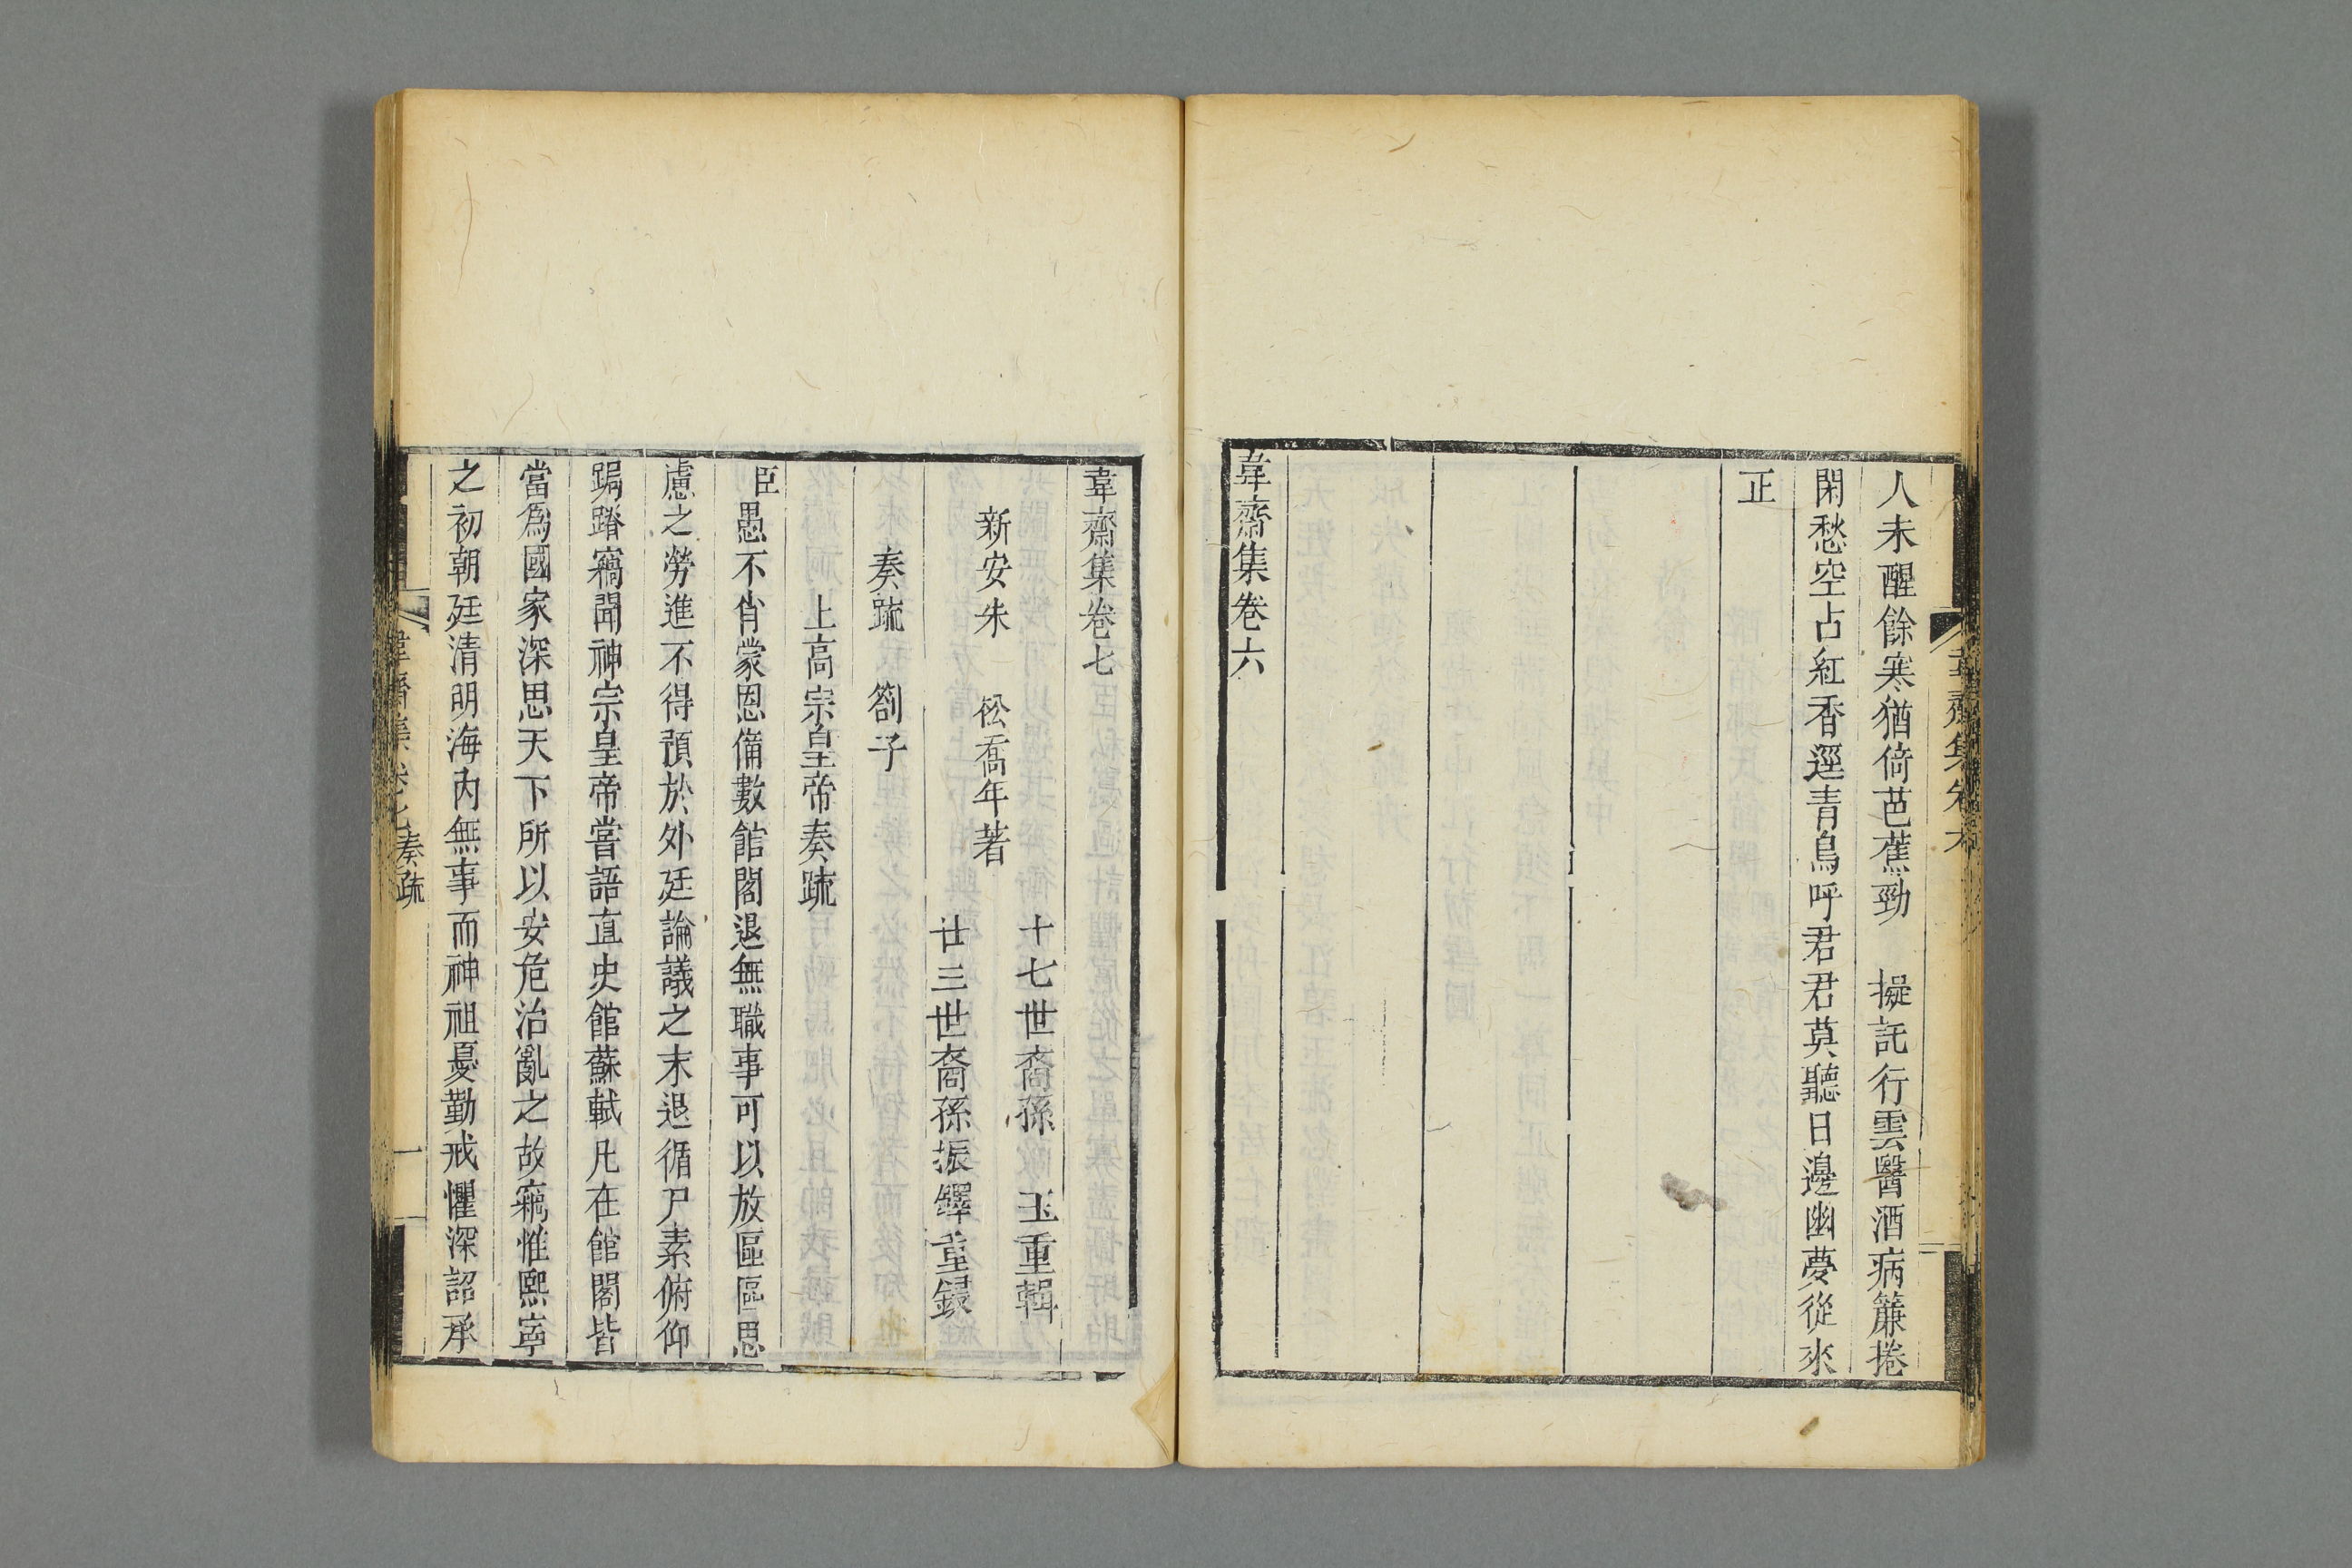 人未醒餘寒猶倚芭蕉勁　擬託行雲醫酒病簾捲
閑愁空占紅香逕青鳥呼君君莫聽日邊幽夢從來
正
韋齋集卷六
韋齋集卷七
十七世裔孫　玉重輯
新安朱　松喬年著
廿三世裔孫振鐸重録
奏疏　劄子
上高宗皇帝奏疏
臣愚不肖蒙恩備數館閣退無職事可以放區區思
慮之勞進不得預於外廷論議之末退循尸素俯仰
跼蹐竊聞神宗皇帝嘗語直史館蘇軾凡在館閣皆
當爲國家深思天下所以安危治亂之故竊惟熙寧
之初朝廷清明海内無事而神祖憂勤戒懼深詔承
韋齋集 卷七奏疏 一